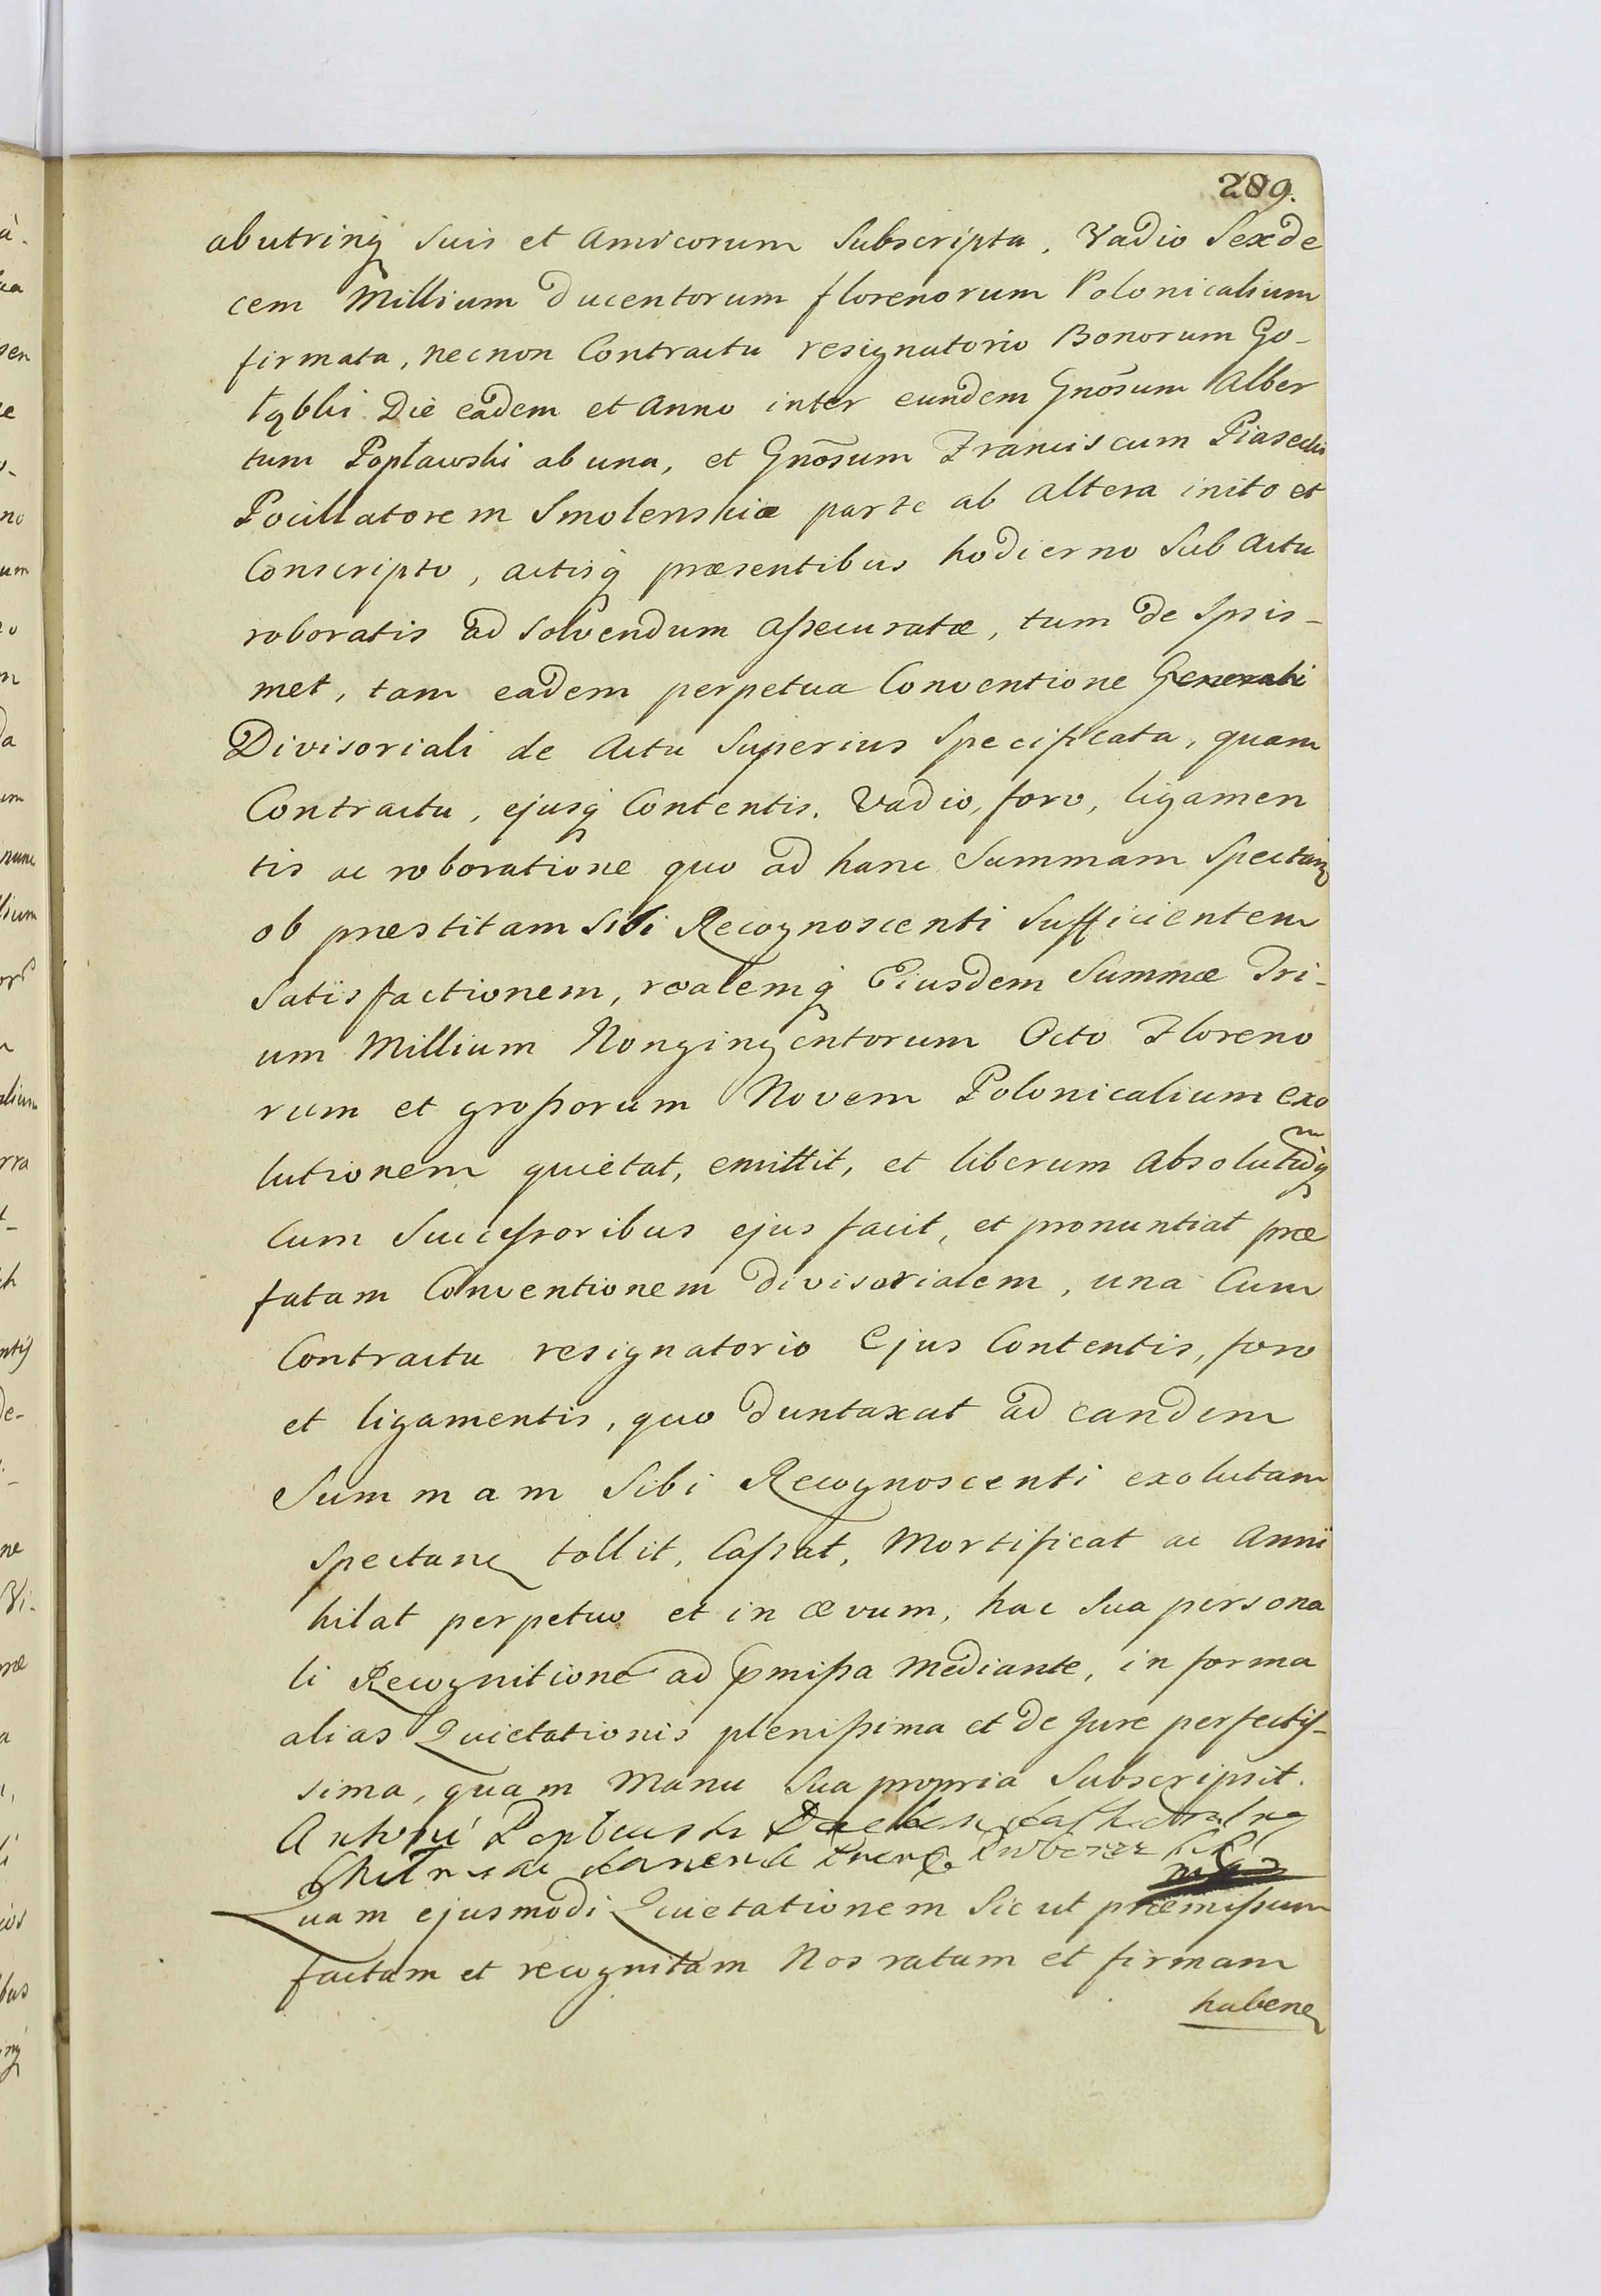 289.
abutrinq suis et Amicorum Subscripta, Vadio Sexde
cem Millium Ducentorum florenorum Polonicalium
firmata, necnon Contractu resignatorio Bonorum Go-
łębki Die eadem et Anno inter eundem Gnosum Alber
tum Popławski ab una, et Gnosum Franciscum Piasecki
Pocillatorem Smolenskiæ parte ab altera inito et
Conscripto, actisq præsentibus hodierno Sub Actu
roboratis ad solvendum assecuratæ, tum de Ipsis-
met, tam eadem perpetua Conventione Generali
Divisoriali de Actu Superius Specificata, quam
Contractu, ejusq Contentis, Vadio, foro, ligamen
tis ac roboratione quo ad hanc Summam Spectan
ob præstitam Sibi Recognoscenti Sufficientem
Satisfactionem, realemq Ejusdem Summæ Tri-
um Millium Nongingentorum Octo Floreno
rum et grossorum Novem Polonicalium exo
lutionem quietat, emittit, et liberum Absolutumq
Cum Successoribus ejus facit, et pronuntiat præ
fatam Conventionem Divisorialem, una Cum
Contractu resignatorio Ejus Contentis, foro
et ligamentis, quo duntaxat ad eandem
Summam Sibi Recognoscenti exolutam
Spectan tollit, Cassat, Mortificat ac Anni
hilat perpetuo et in ævum, hac Sua persona
li Recognitione ad pmissa Mediante, in forma
alias Quietationis plenissima et de Jure perfectis-
sima, quam Manu Sua propria Subscripsit.
Antoni Popławski
Quam ejusmodi Quietationem Sic ut præmissum
factam et recognitam Nos ratam et firmam
haben